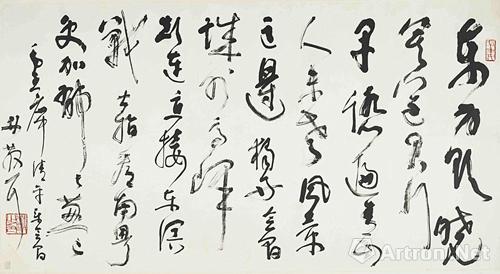 東方欲曉
莫道君行
早踏遍青山
人未老風景
這邊獨好會昌
城外高峰
顛連直接東溟
戰士指看南粤
更加鬱鬱葱葱
毛主席清平樂會昌
林散耳
Artron.Net